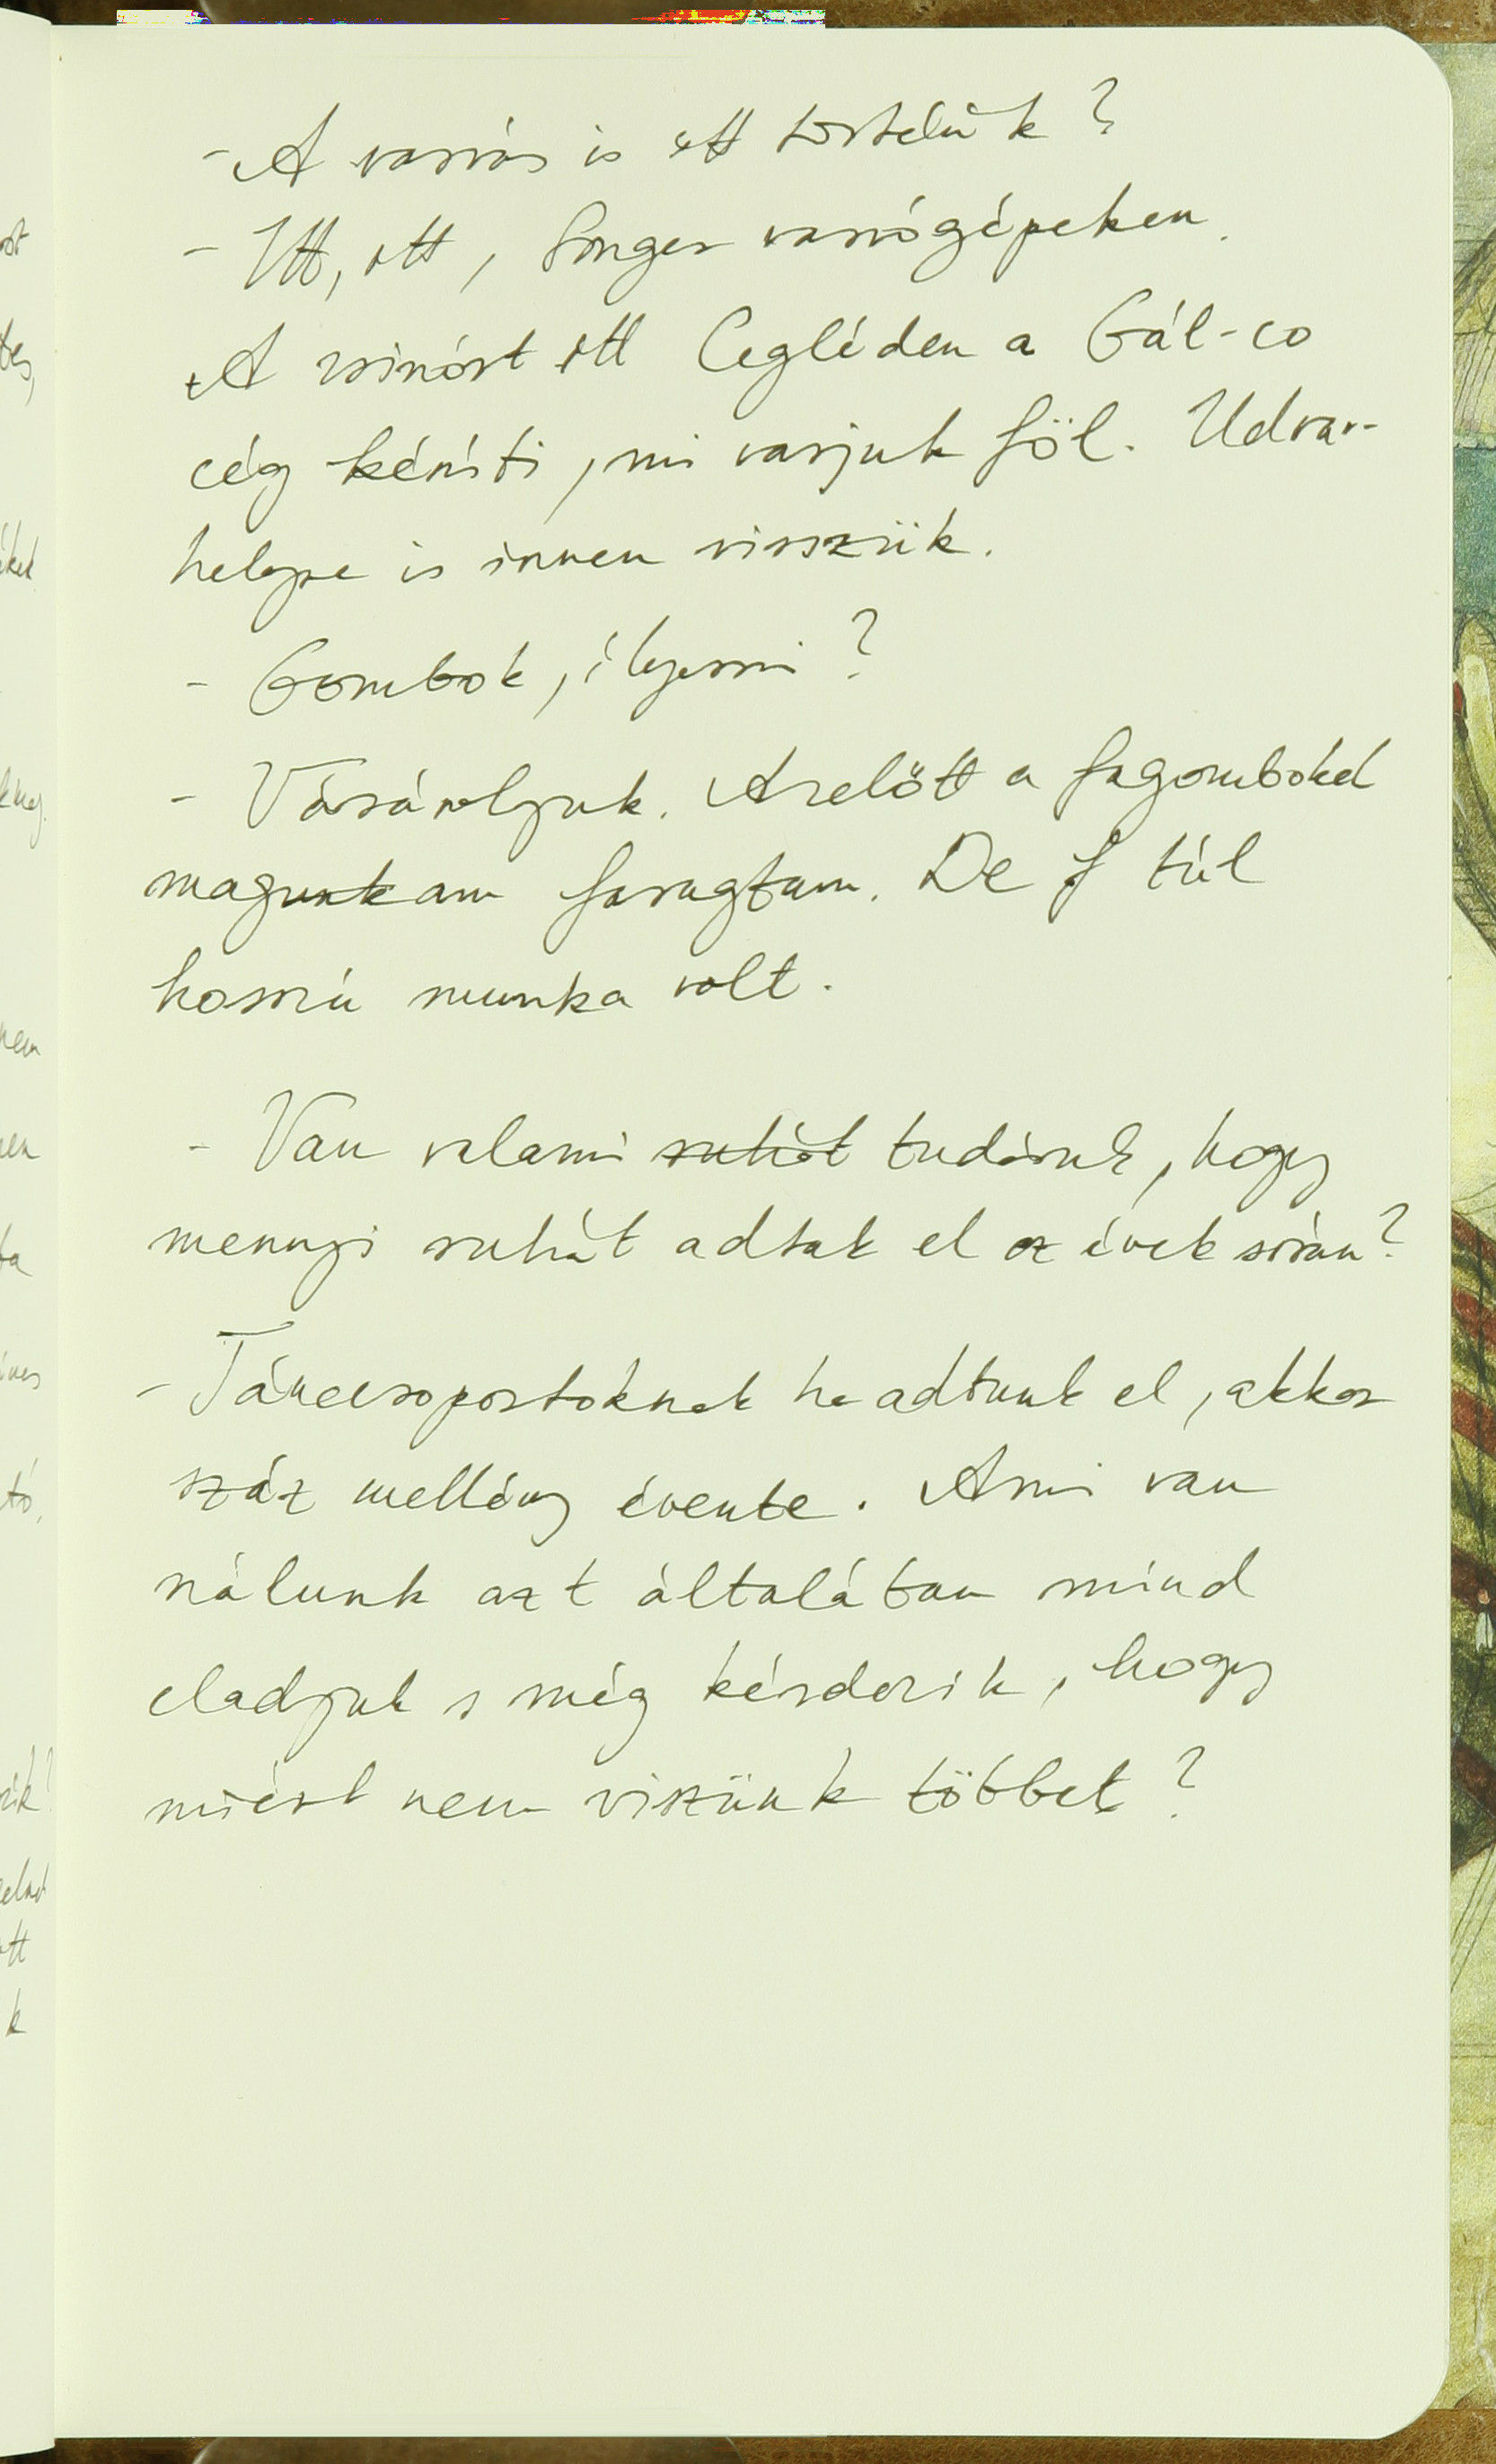 - A varrás is itt történik?
- Itt, itt, Singer varrógépeken.
A zsinórt itt Cegléden a Gál-co
cég készíti, mi varrjuk föl. Udvar-
helyre is innen visszük.
- Gombok, ilyesmi?
- Vásároljuk. Azelőtt a fagombokat
magunkam faragtam. De túl
hosszú munka volt.
- Van valami ruhát tudásuk, hogy
mennyi ruhát adtak el az évek során?
- Tánccsoportoknak ha adtunk el, akkor
száz mellény évente. Ami van
nálunk azt általában mind
eladjuk s még kérdezik, hogy
miért nem viszünk többet?